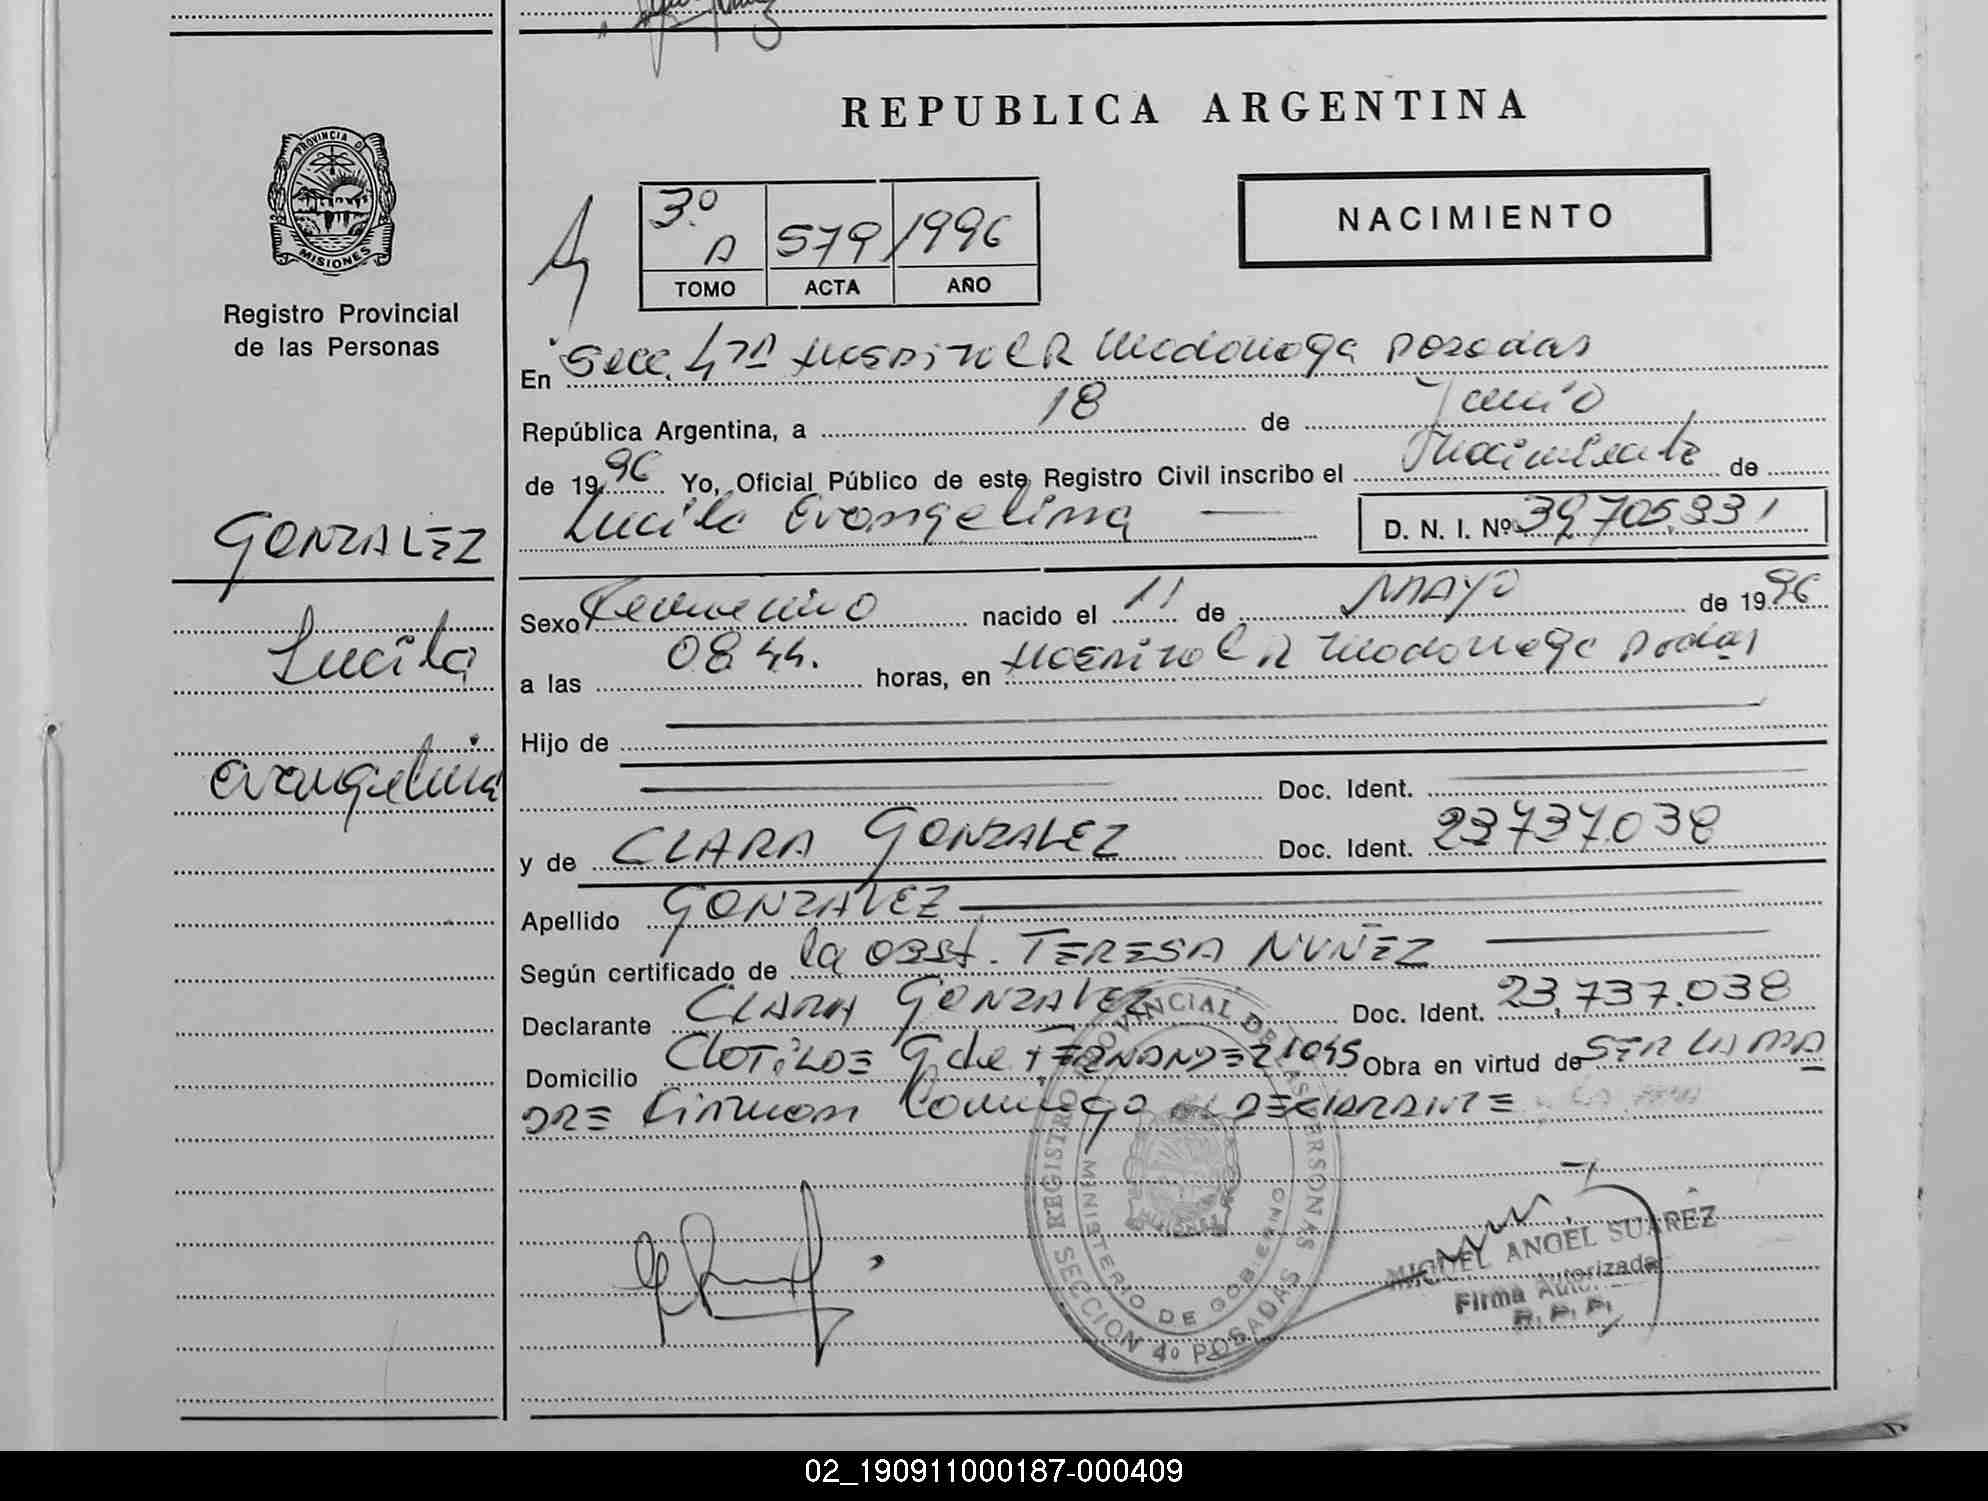 REPUBLICA ARGENTINA
PROVINCIA DE
MISIONES
Registro Provincial
de las Personas
3º A 579 1996
TOMO ACTA AÑO
NACIMIENTO
En Secc. 4ta Hospital R Madonaga Posadas
República Argentina, a 18 de Junio
de 1996 Yo, Oficial Público de este Registro Civil inscribo el Nacimiento de
Lucila Evangelina D. N. I. Nº 39.705.331
GONZALEZ
Lucila
Evangelina
Sexo Femenino nacido el 11 de MAYO de 1996
a las 08.44. horas, en Hospital R Madonaga Podas
Hijo de
Doc. Ident.
y de CLARA GONZALEZ Doc. Ident. 23.737.038
Apellido GONZALEZ
Según certificado de la OBST. TERESA NUÑEZ
Declarante CLARA GONZALEZ Doc. Ident. 23.737.038
Domicilio CLOTILDE G. de FERNANDEZ 1045 Obra en virtud de SER LA MA
DRE Firman conmigo DECLARANTE
REGISTRO PROVINCIAL DE LAS PERSONAS
MINISTERIO DE GOBIERNO
SECCION 4º POSADAS
MIGUEL ANGEL SUAREZ
Firma Autorizada
R. P. P.
02_190911000187-000409